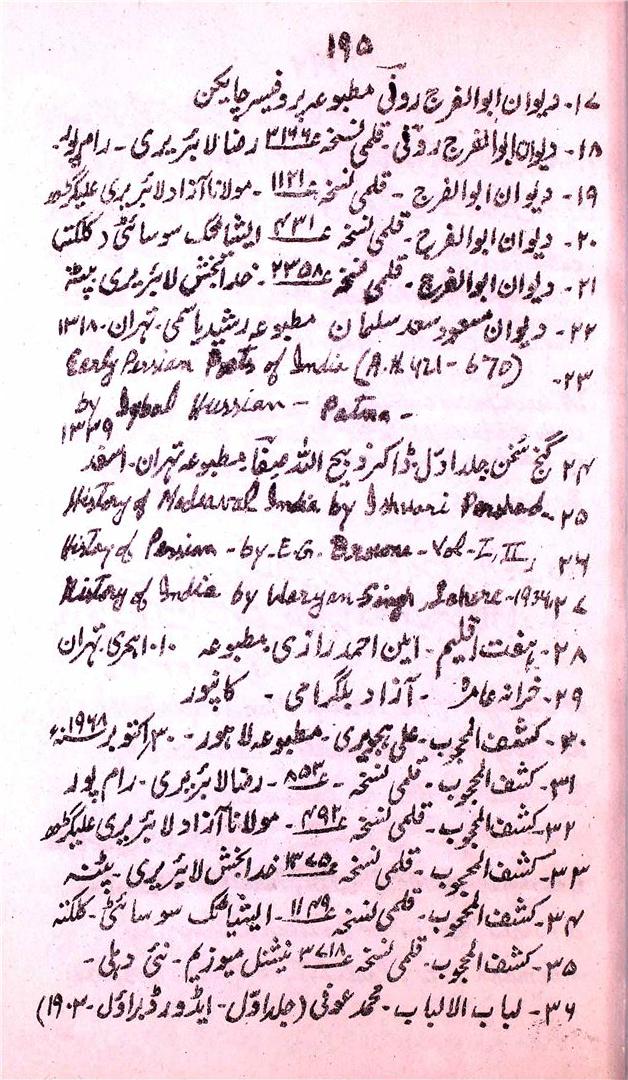 ۱۹۵
۱۷۔ دیوان ابوالفرج رونی مطبوعہ پروفیسر چایکن
۱۸۔ دیوان ابوالفرج رونی ۔ قلمی نسخہ ۳۱۶۶ رضا لائبریری ۔ رام پور
۱۹۔ دیوان ابوالفرج ۔ قلمی نسخہ ۱۱۲۱ ۔ مولانا آزاد لائبریری علیگڑھ
۲۰۔ دیوان ابوالفرج ۔ قلمی نسخہ ۴۳۱ ایشیاٹک سوسائٹی کلکتہ
۲۱۔ دیوان ابوالفرج ۔ قلمی نسخہ ۲۳۵۸ ۔ خدا بخش لائبریری پٹنہ
۲۲۔ دیوان مسعود سعد سلمان مطبوعہ رشید یاسمی ۔ تہران ۔ ۱۳۱۸
۲۳۔ Early Persian Poets of India (A.H. 421 - 670)
by Iqbal Hussian - Patna -
۲۴ گنج سخن جلد اوّل: ڈاکٹر ذبیح اللہ صفا مطبوعہ تہران ۔ اسفند ۱۳۳۹
۲۵ - History of Mediaval India by Ishwari Pershad
۲۶ History of Persian - by - E.G. Browne - Vol - I, II,
۲۷ History of India by Waryan Singh, Lahore - 1934
۲۸۔ ہفت اقلیم ۔ امین احمد رازی مطبوعہ ۱۰۱۰ ہجری تہران
۲۹۔ خزانہ عامرہ ۔ آزاد بلگرامی ۔ کانپور
۳۰۔ کشف المحجوب ۔ علی ہجویری ۔ مطبوعہ لاہور ۔ ۳۰/اکتوبر ۱۹۶۸ء
۳۱۔ کشف المحجوب ۔ قلمی نسخہ ۔ ۸۵۳ ۔ رضا لائبریری ۔ رام پور
۳۲۔ کشف المحجوب ۔ قلمی نسخہ ۴۹۲ ۔ مولانا آزاد لائبریری علیگڑھ
۳۳۔ کشف المحجوب ۔ قلمی نسخہ ۱۳۷۵ خدا بخش لائبریری ۔ پٹنہ
۳۴۔ کشف المحجوب ۔ قلمی نسخہ ۱۱۴۹ ۔ ایشیاٹک سوسائٹی ۔ کلکتہ
۳۵۔ کشف المحجوب ۔ قلمی نسخہ ۳۷۱۸ نیشنل میوزیم ۔ نئی دہلی ۔
۳۶۔ لباب الالباب ۔ محمد عوفی (جلد اوّل ۔ ایڈورڈ براؤل ۔ ۱۹۰۳)